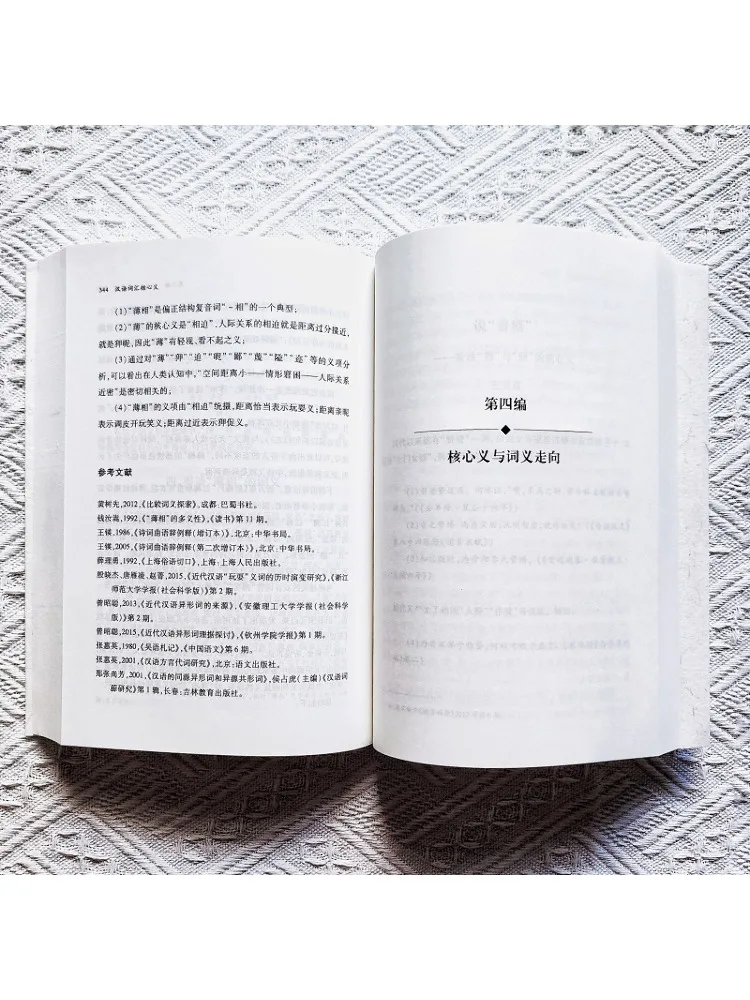 344 汉语词汇核心义
(1)“薄相”是偏正结构复音词“-相”的一个典型；
(2)“薄”的核心义是“相迫”,人际关系的相迫就是距离过分接近,
就是狎昵,因此“薄”有轻视、看不起之义；
(3)通过对“薄”“狎”“迫”“昵”“鄙”“蔑”“隘”“迩”等的义项分
析,可以看出在人类认知中,“空间距离小——情形窘困——人际关系
近密”是密切相关的；
(4)“薄相”的义项由“相迫”统摄,距离恰当表示玩耍义;距离亲昵
表示调皮开玩笑义;距离过近表示狎促义。
参考文献
黄树先,2012,《比较词义探索》,成都:巴蜀书社。
钱汝嵩,1992,《“薄相”的多义性》,《读书》第11期。
王锳,1986,《诗词曲语辞例释(增订本)》,北京:中华书局。
王锳,2005,《诗词曲语辞例释(第二次增订本)》,北京:中华书局。
薛理勇,1992,《上海俗语切口》,上海:上海人民出版社。
殷晓杰、唐雁凌、赵蓉,2015,《近代汉语“玩耍”义词的历时演变研究》,《浙江
师范大学学报(社会科学版)》第2期。
曾昭聪,2013,《近代汉语异形词的来源》,《安徽理工大学学报(社会科学
版)》第2期。
曾昭聪,2015,《近代汉语异形词理据探讨》,《钦州学院学报》第1期。
张惠英,1980,《吴语札记》,《中国语文》第6期。
张惠英,2001,《汉语方言代词研究》,北京:语文出版社。
郑张尚芳,2001,《汉语的同源异形词和异源共形词》,侯占虎(主编)《汉语词
源研究》第1辑,长春:吉林教育出版社。
第四编
核心义与词义走向